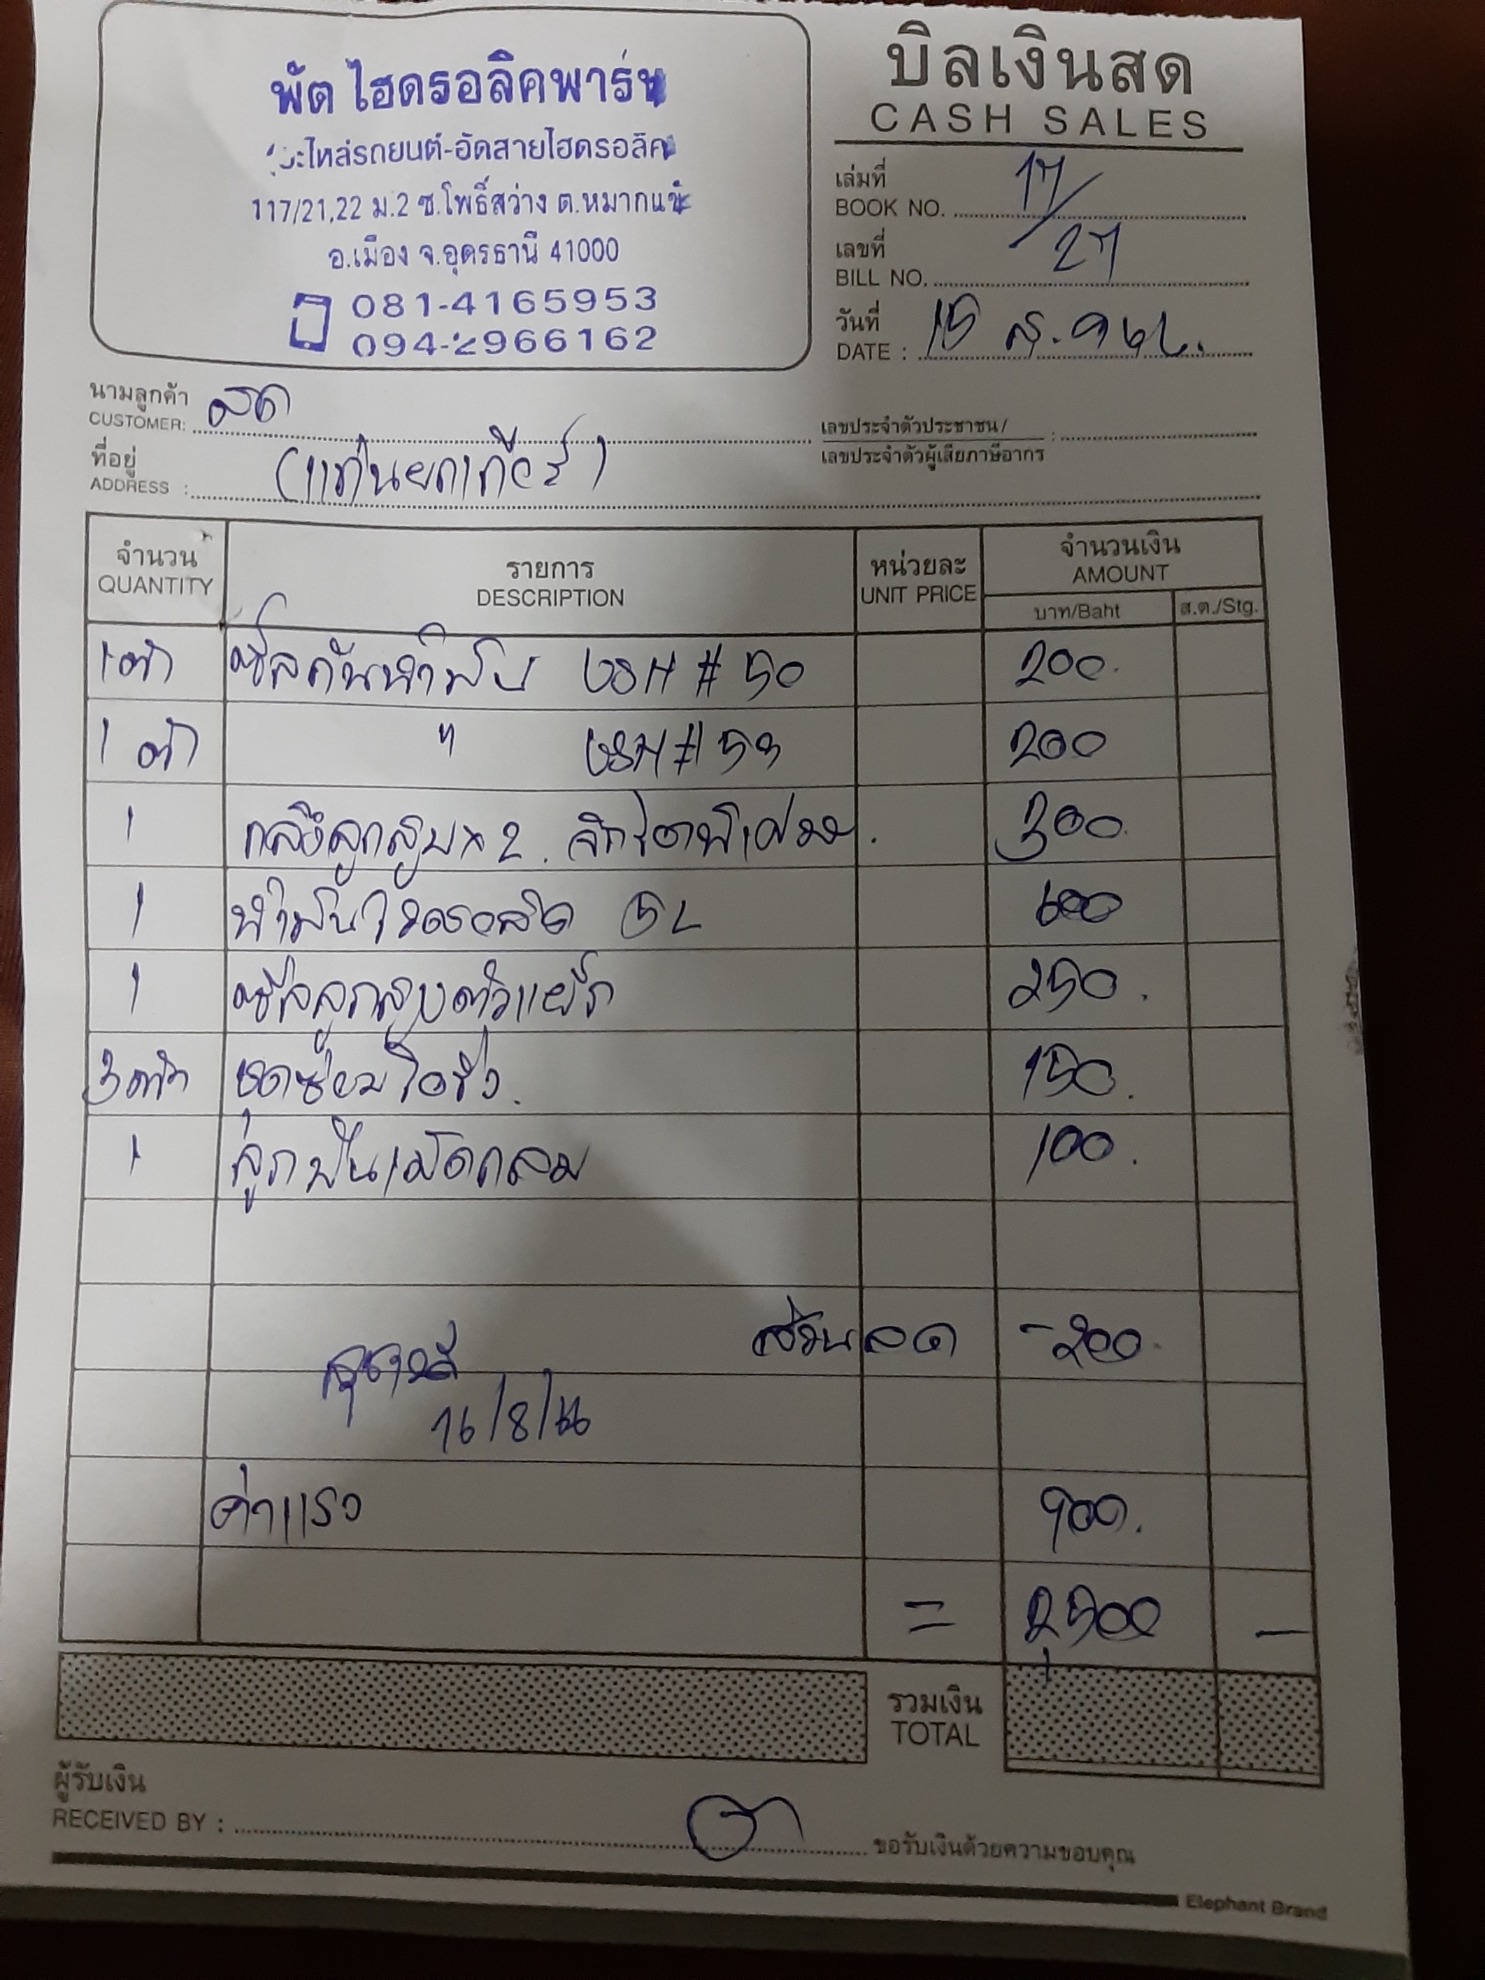 พัต ไฮดรอลิคพาร์ท
อะไหล่รถยนต์-อัดสายไฮดรอลิค
117/21,22 ม.2 ซ.โพธิ์สว่าง ต.หมากแข้ง
อ.เมือง จ.อุดรธานี 41000
081-4165953
094-2966162
บิลเงินสด
CASH SALES
เล่มที่
BOOK NO. 17
เลขที่
BILL NO. 27
วันที่
DATE : 15 ส.ค 66.
นามลูกค้า
CUSTOMER: สด
ที่อยู่
ADDRESS : (แท่นยกเกียร์)
เลขประจำตัวประชาชน/
เลขประจำตัวผู้เสียภาษีอากร :
จำนวน QUANTITY รายการ DESCRIPTION หน่วยละ UNIT PRICE จำนวนเงิน AMOUNT
บาท/Baht ส.ต./Stg.
1 ตัว ซีลกันน้ำมัน USH # 50 200.
1 ตัว " USH # 53 200
1 กลึงลูกสูบ x 2. 300.
1 น้ำมันไฮดรอลิค 5L 600
1 ซีลลูกสูบตัวแย็ก 250.
3 ตัว ชุดซ่อมโอริง. 150.
1 ลูกปืนเม็ดกลม 100.
ส่วนลด -200.
16/8/66
ค่าแรง 900.
= 2,500 —
รวมเงิน
TOTAL
ผู้รับเงิน
RECEIVED BY :
ขอรับเงินด้วยความขอบคุณ
Elephant Brand